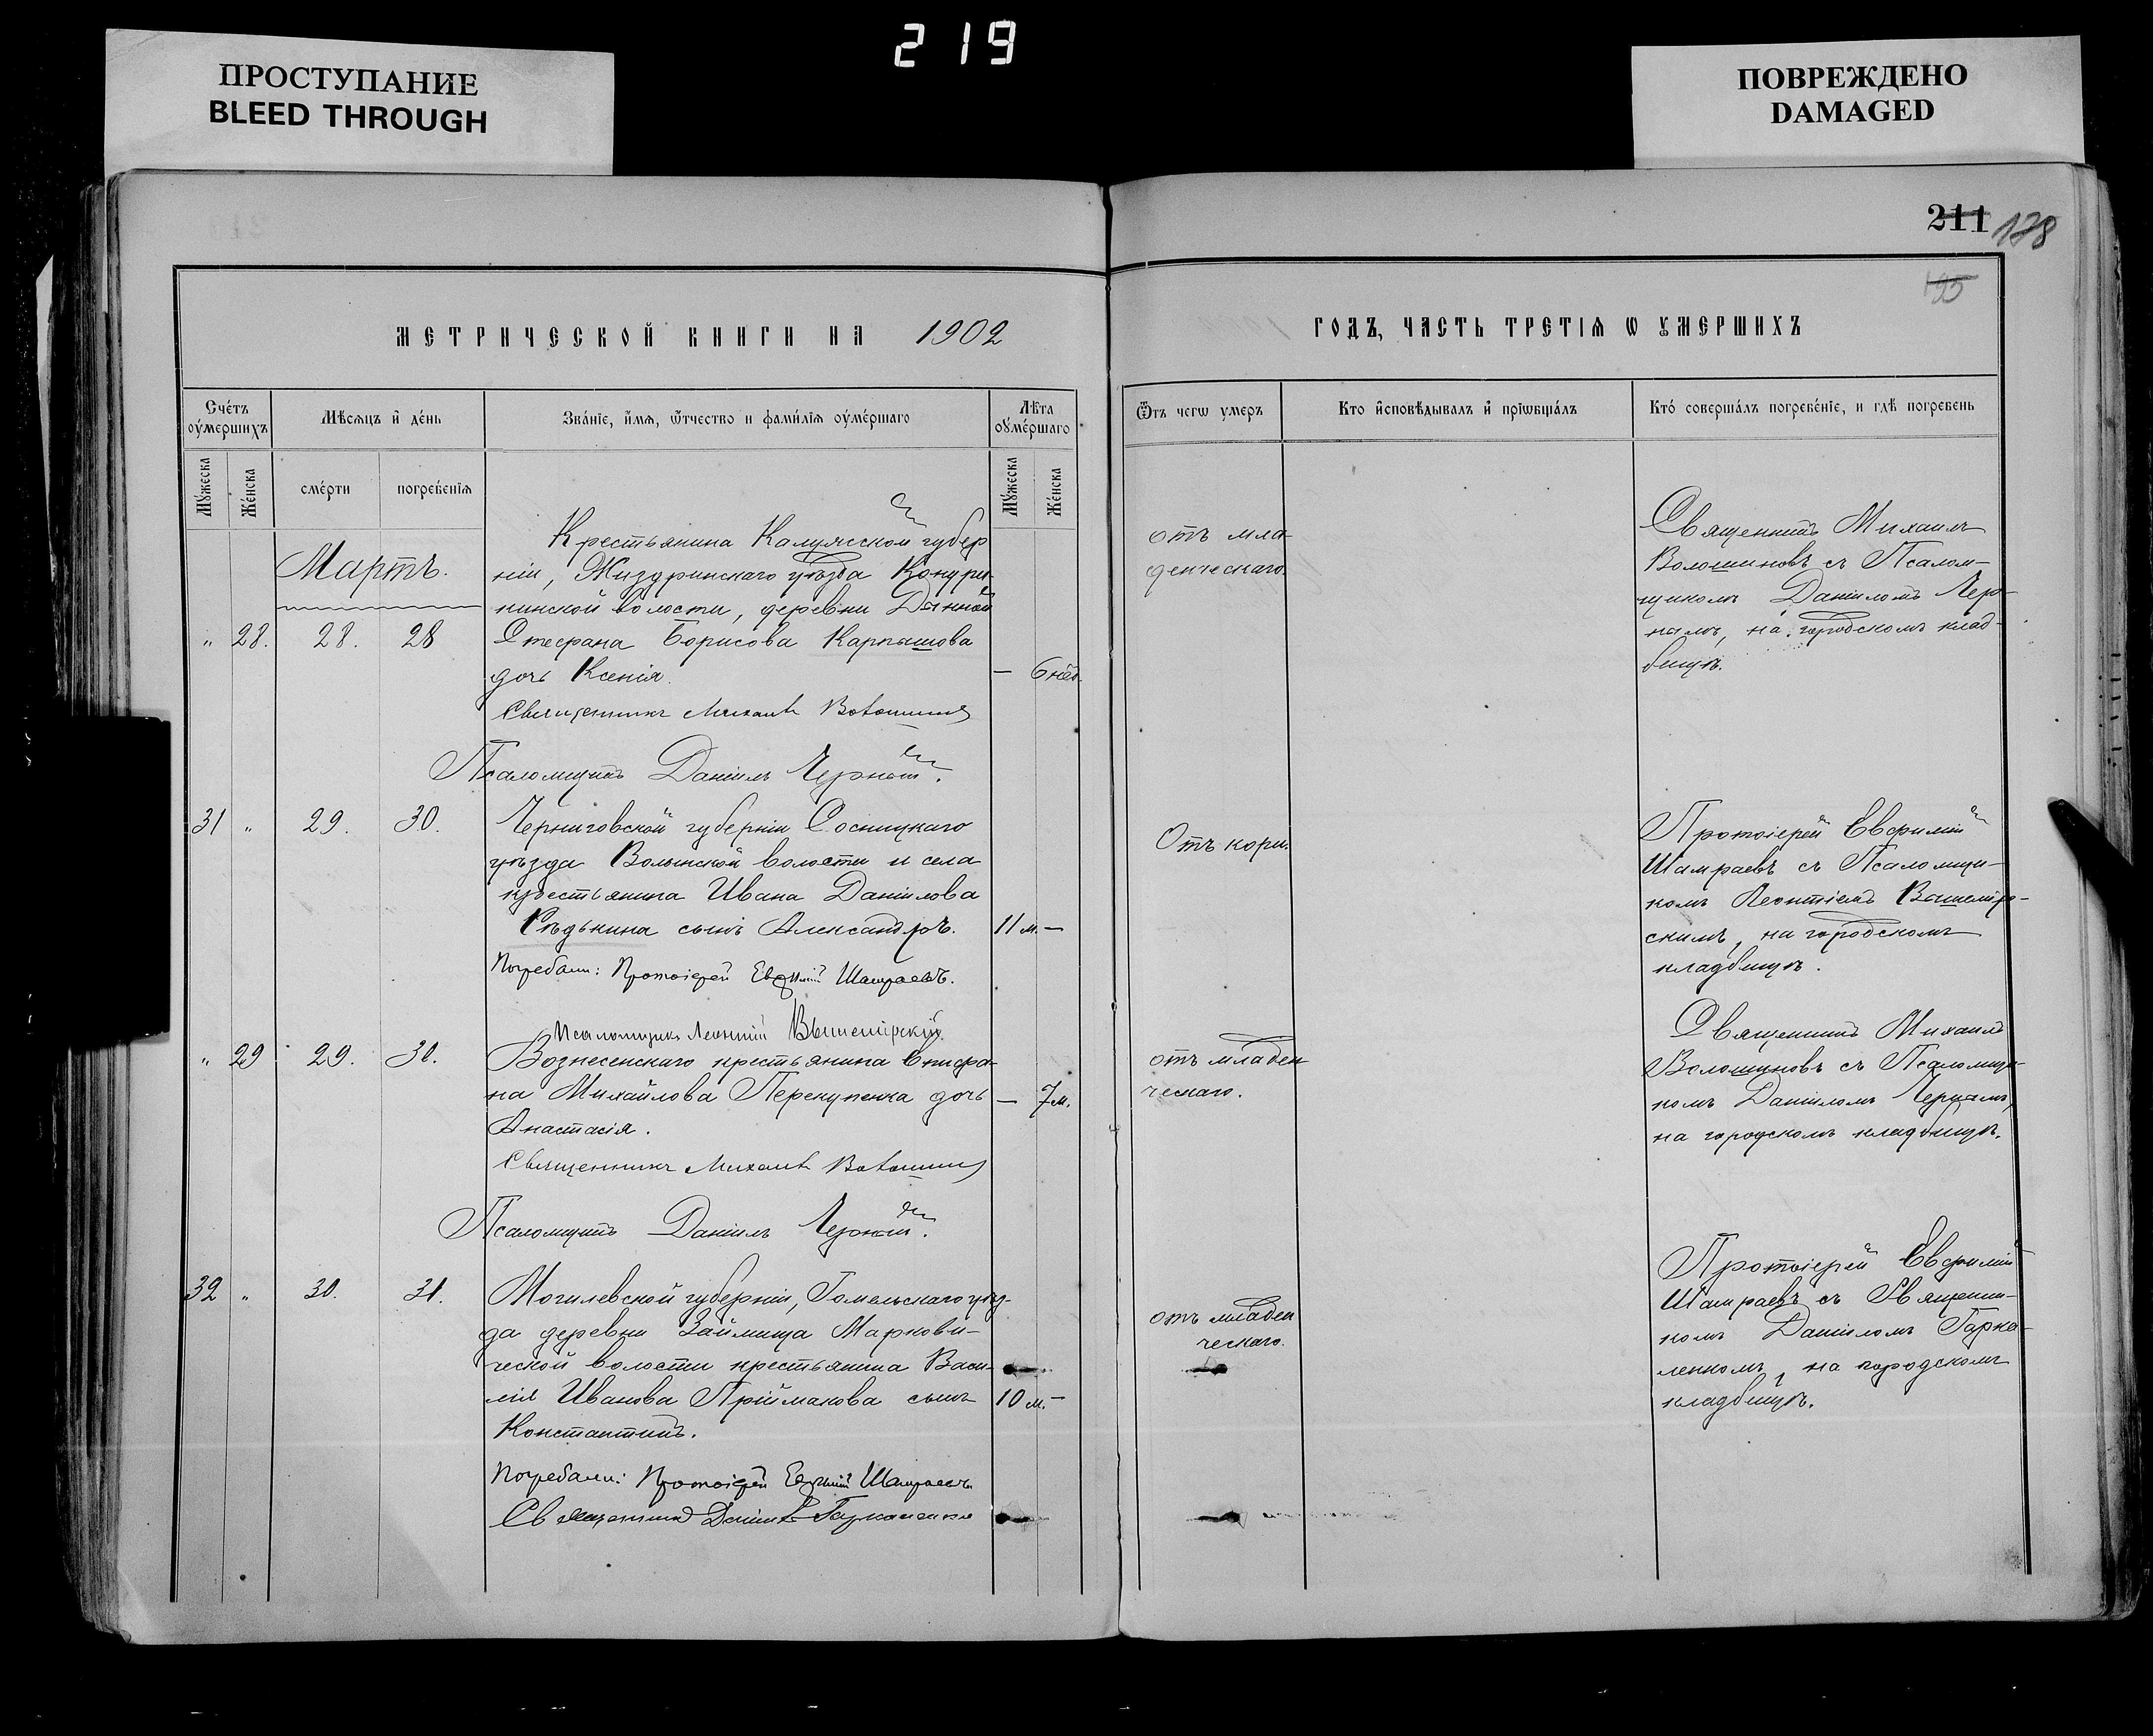 219
ПРОСТУПАНИЕ
BLEED THROUGH
ПОВРЕЖДЕНО
DAMAGED
211 178
195
МЕТРИЧЕСКОЙ КНИГИ НА 1902
ГОДЪ, ЧАСТЬ ТРЕТІѦ Ѡ ꙊМЕРШИХЪ
Счетъ оумершихъ
Мѣсяцъ и день
Званіе, имя, ѿтчество и фамилія оумершаго
Лѣта оумершаго
Ѿтъ чегѡ умеръ
Кто исповѣдывалъ и пріѡбщалъ
Кто совершалъ погребеніе, и гдѣ погребенъ
Мужеска
Женска
смерти
погребенія
Мужеска
Женска
Мартъ.
Крестьянина Калужской губер
ніи, Жиздринскаго уѣзда
кинской волости, деревни
" 28. 28. 28 Стефана Борисова Карпашова
дочь Ксенія. — 6 нед.
Священникъ Михаилъ Волошиновъ
Псаломщикъ Даніилъ Черный.
отъ мла-
денческаго.
Священникъ Михаилъ
Волошиновъ съ Псалом-
щикомъ Даніиломъ Чер-
нымъ, на городскомъ клад-
бищѣ.
31 " 29. 30. Черниговской губерніи Сосницкаго
уѣзда Волынской волости и села
крестьянина Ивана Даніилова
Рѣдькина сынъ Александръ. 11 м. —
Погребали: Протоіерей Евфимій Шамраевъ.
Псаломщикъ Леонтій Вышемірскій.
Отъ кори.
Протоіерей Евфимій
Шамраевъ съ Псаломщи-
комъ Леонтіемъ Вышемір-
скимъ, на городскомъ
кладбищѣ.
" 29 29. 30. Вознесенскаго крестьянина Стефа-
на Михайлова Перекупенка дочь — 7 м.
Анастасія.
Священникъ Михаилъ Волошиновъ
Псаломщикъ Даніилъ Черный.
отъ младен
ческаго.
Священникъ Михаилъ
Волошиновъ съ Псаломщи-
комъ Даніиломъ Чернымъ,
на городскомъ кладбищѣ.
32 " 30. 31. Могилевской губерніи, Гомельскаго уѣз-
да деревни Займища Маркови-
ческой волости крестьянина Васи-
лія Иванова Пріймакова сынъ 10 м. —
Константинъ.
Погребали: Протоіерей Евфимій Шамраевъ.
Священникъ Даніилъ Гаркаленко
отъ младен
ческаго.
Протоіерей Евфимій
Шамраевъ съ Священни-
комъ Даніиломъ Гарка-
ленкомъ, на городскомъ
кладбищѣ.